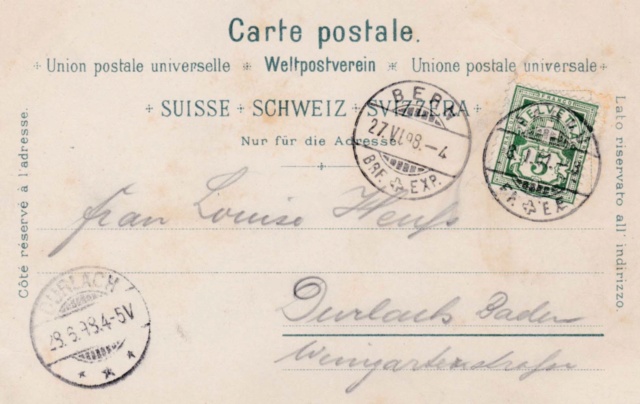 Carte postale.
Union postale universelle * Weltpostverein * Unione postale universale
SUISSE + SCHWEIZ + SVIZZERA
Nur für die Adresse
Côté réservé à l'adresse.
Lato riservato all' indirizzo.
BERN
27.VI.98.–4
BRF. EXP.
HELVETIA
5
frau Louise Heuß
Durlach Baden
Weingartenstraße
DURLACH
28.6.98.4-5V